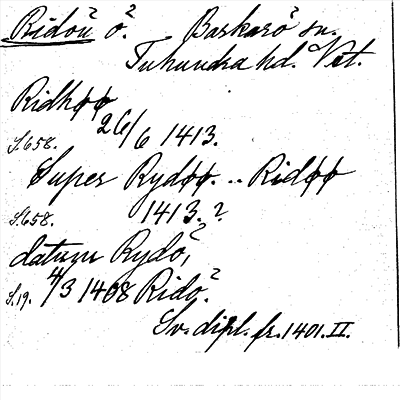 Ridön ö. Barkarö sn.
Tuhundra hd. Vst.
Ridhøø
S.658. 26/6 1413.
Super Rydøø. .. Ridøø
S.658. 1413.?
datum Rydö,
S.19. 4/3 1408 Ridö.
Sv. dipl. fr. 1401. II.